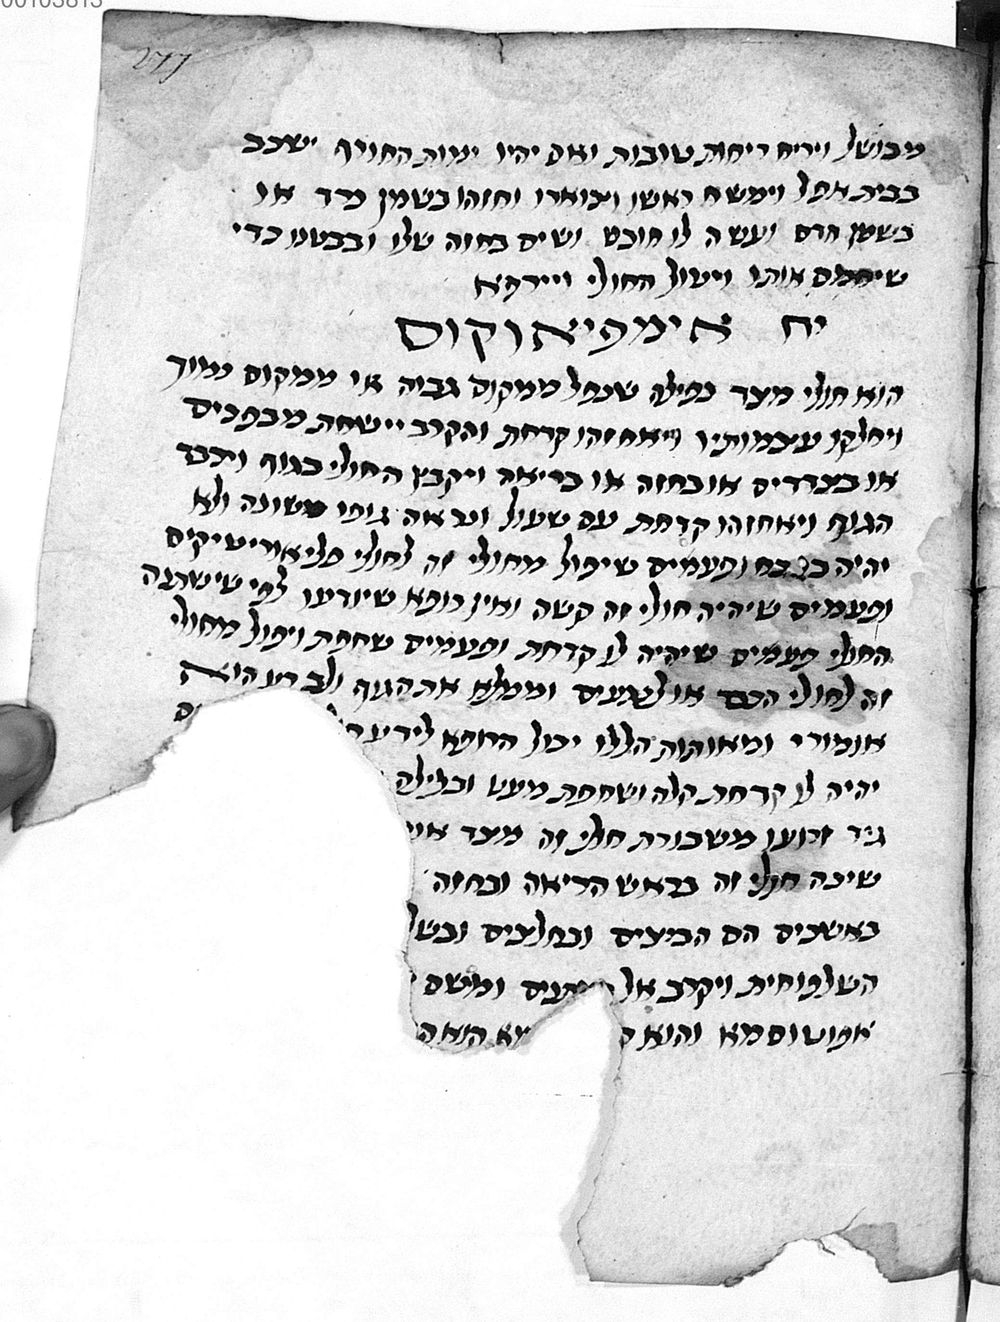 00103813
277
מבושל ויריח ריחות טובות ואם יהיו ימות החורף ישכב
בבית אפל וימשח ראשו וצוארו וחזהו בשמן כרד או
בשמן חדס ועשה לו חובט ושים בחזה שלו ובבטנו כדי
שיחמם אותו ויטול החולי ויירפא
יח אימפיאוקוס
הוא חולי מצד נפילה שנפל ממקום גבוה או ממקום נמוך
ויחלקו עצמותיו ויאחזהו קדחת והקרב יישחת מבפנים
או בצדדים או בחזה או בריאה ויקבץ החולי בגוף ויכבד
הגוף ויאחזהו קדחת עם שעול ונראה גופו משונה ולא
יהיה ופעמים שיפול מחולי זה לחולי פליאוריטיקים
ופעמים שיהיה חולי זה קשה ואין רופא שיודעו לפי שישתנה
החולי פעמים שיהיה לו קדחת ופעמים שחפת ויפול מחולי
זה לחולי הכבד או למעים וממלא את הגוף ולב הוא
אומורי ומאותות הללו יכול הרופא לידע
יהיה לו קדחת קלה ושחפת מעט ובלילה
זרועו משבורת חולי זה מצד
שיכה חולי זה בראש הריאה ובחזה
באשכים הם הביצים ובחלצים
השלפוחית ויקרב אל ומשם
אפוטוסמא והוא הנאה